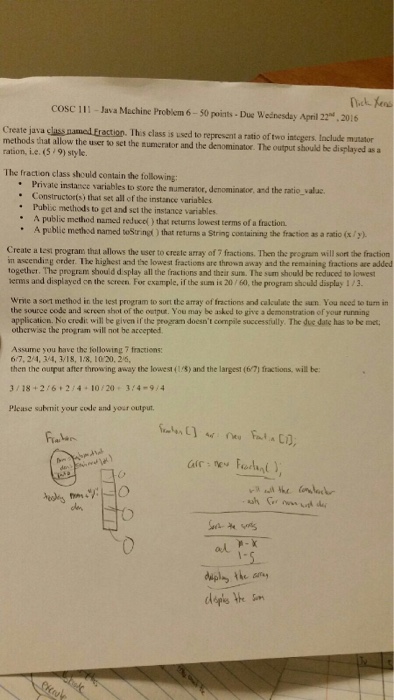 COSC 111 – Java Machine Problem 6 – 50 points - Due Wednesday April 22nd, 2016
Create java class named Fraction. This class is used to represent a ratio of two integers. Include mutator
methods that allow the user to set the numerator and the denominator. The output should be displayed as a
ration, i.e. (5 / 9) style.
The fraction class should contain the following:
• Private instance variables to store the numerator, denominator, and the ratio value.
• Constructor(s) that set all of the instance variables
• Public methods to get and set the instance variables
• A public method named reduce( ) that returns lowest terms of a fraction.
• A public method named toString( ) that returns a String containing the fraction as a ratio (x / y).
Create a test program that allows the user to create array of 7 fractions. Then the program will sort the fraction
in ascending order. The highest and the lowest fractions are thrown away and the remaining fractions are added
together. The program should display all the fractions and their sum. The sum should be reduced to lowest
terms and displayed on the screen. For example, if the sum is 20 / 60, the program should display 1 / 3.
Write a sort method in the test program to sort the array of fractions and calculate the sum. You need to turn in
the source code and screen shot of the output. You may be asked to give a demonstration of your running
application. No credit will be given if the program doesn't compile successfully. The due date has to be met,
otherwise the program will not be accepted.
Assume you have the following 7 fractions:
6/7, 2/4, 3/4, 3/18, 1/8, 10/20, 2/6,
then the output after throwing away the lowest (1/8) and the largest (6/7) fractions, will be:
3 / 18 + 2 / 6 + 2 / 4 + 10 / 20 + 3 / 4 = 9 / 4
Please submit your code and your output.
Fraction
arr = new Fraction( );
will call the constructor
1-5
display the array
display the sum